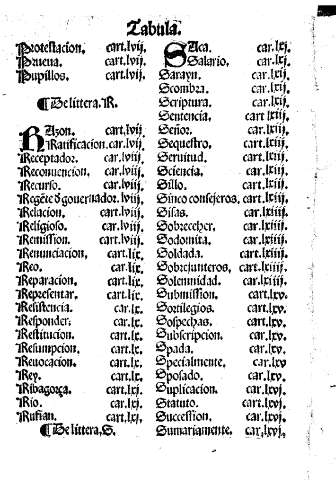 Tabula.
Protestacion. cart.lvij.
Prueua. cart.lvij.
Pupillos. cart.lvij.
¶ De littera. R.
RAzon. cart.lvij.
Ratificacion. car.lviij.
Receptador. car.lviij.
Reconuencion. car.lviij.
Recurso. car.lviij.
Regẽte ď gouernador. lviij.
Relacion. cart.lviij.
Religioso. car.lviij.
Remission. cart.lviij.
Renunciacion. cart.lix.
Reo. car.lix.
Reparacion. cart.lix.
Representar. cart.lix.
Resistencia. car.lx.
Responder. cart.lx.
Restitucion. cart.lx.
Resumpcion. cart.lx.
Reuocacion. cart.lx.
Rey. cart.lx.
Ribagorça. cart.lxj.
Rio. car.lxj.
Rufian. cart.lxj.
¶ De littera, S.
SAca. car.lxj.
Salario. car.lxj.
Sarayn. car.lxij.
Scombra. car.lxij.
Scriptura. car.lxij.
Sentencia. cart.lxij.
Señor. car.lxiij.
Sequestro. cart.lxiij.
Seruitud. car.lxiij.
Sciencia. car.lxiij.
Sillo. car.lxiij.
Sinco consejeros. cart.lxiij.
Sisas. car.lxiiij.
Sobreceher. car.lxiiij.
Sodomita. car.lxiiij.
Soldada. cart.lxiiij.
Sobrejunteros. car.lxiiij.
Solennidad. car.lxiiij.
Submission. cart.lxv.
Sortilegios. cart.lxv.
Sospechas. cart.lxv.
Subscripcion. car.lxv.
Spada. car.lxv.
Specialmente. car.lxv.
Sposado. car.lxv.
Suplicacion. car.lxvj.
Statuto. cart.lxvj.
Succession. car.lxvj.
Sumariamente. car.lxvj.